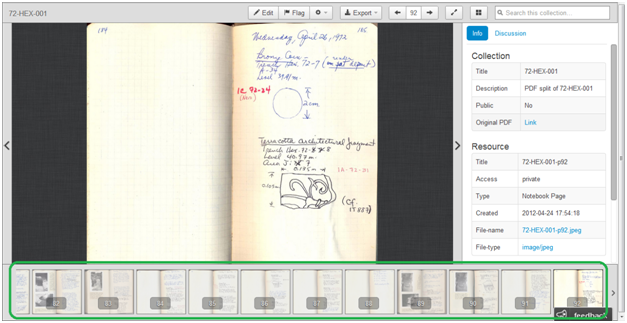 72-HEX-001
Edit
Flag
Export
92
Search this collection...
184
186
Wednesday, April 26, 1972
Bronze Coin
Trench Hex. 72-7
Level 39.81m.
IA 72-24
2 cm
Terracotta architectural fragment
Trench Hex. 72-
Level 40.97m.
Area
0.195m
(cf.
Info
Discussion
Collection
Title 72-HEX-001
Description PDF split of 72-HEX-001
Public No
Original PDF Link
Resource
Title 72-HEX-001-p92
Access private
Type Notebook Page
Created 2012-04-24 17:54:18
File-name 72-HEX-001-p92.jpeg
File-type image/jpeg
82
83
84
85
86
87
88
89
90
91
feedback